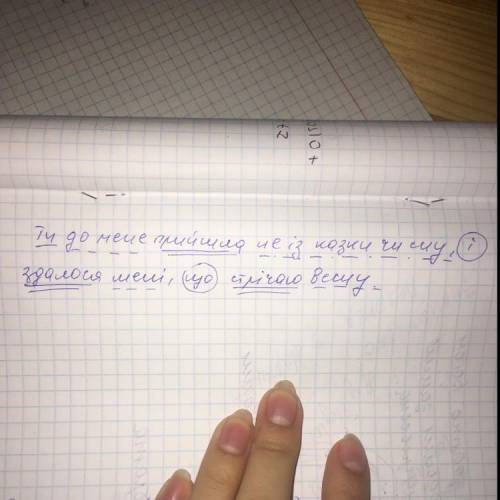 Ти до мене прийшла не із казки чи сну, і
здалося мені, що стрічаю весну.